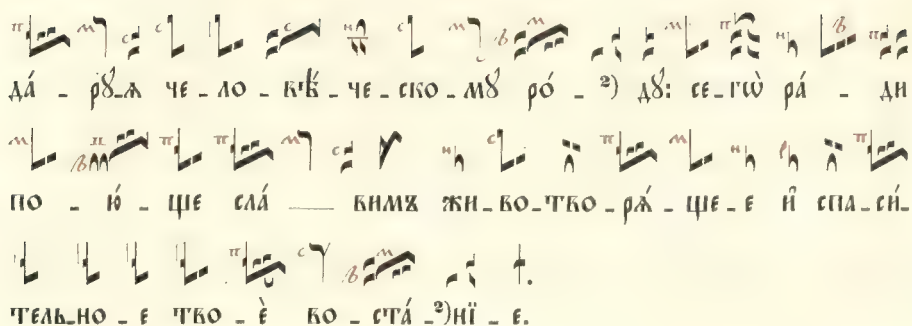 да́ - рꙋ-ѧ че - ло - вѣ́ - че - ско - мꙋ ро́ - ²) дꙋ: се - гѡ̀ ра́ - ди
по - ю́ - ще сла́ — вимъ жи - во - тво - рѧ́ - ще - е и҆ спа - си́ -
тель - но - е тво - ѐ во - ста́ - ²)нї - е.